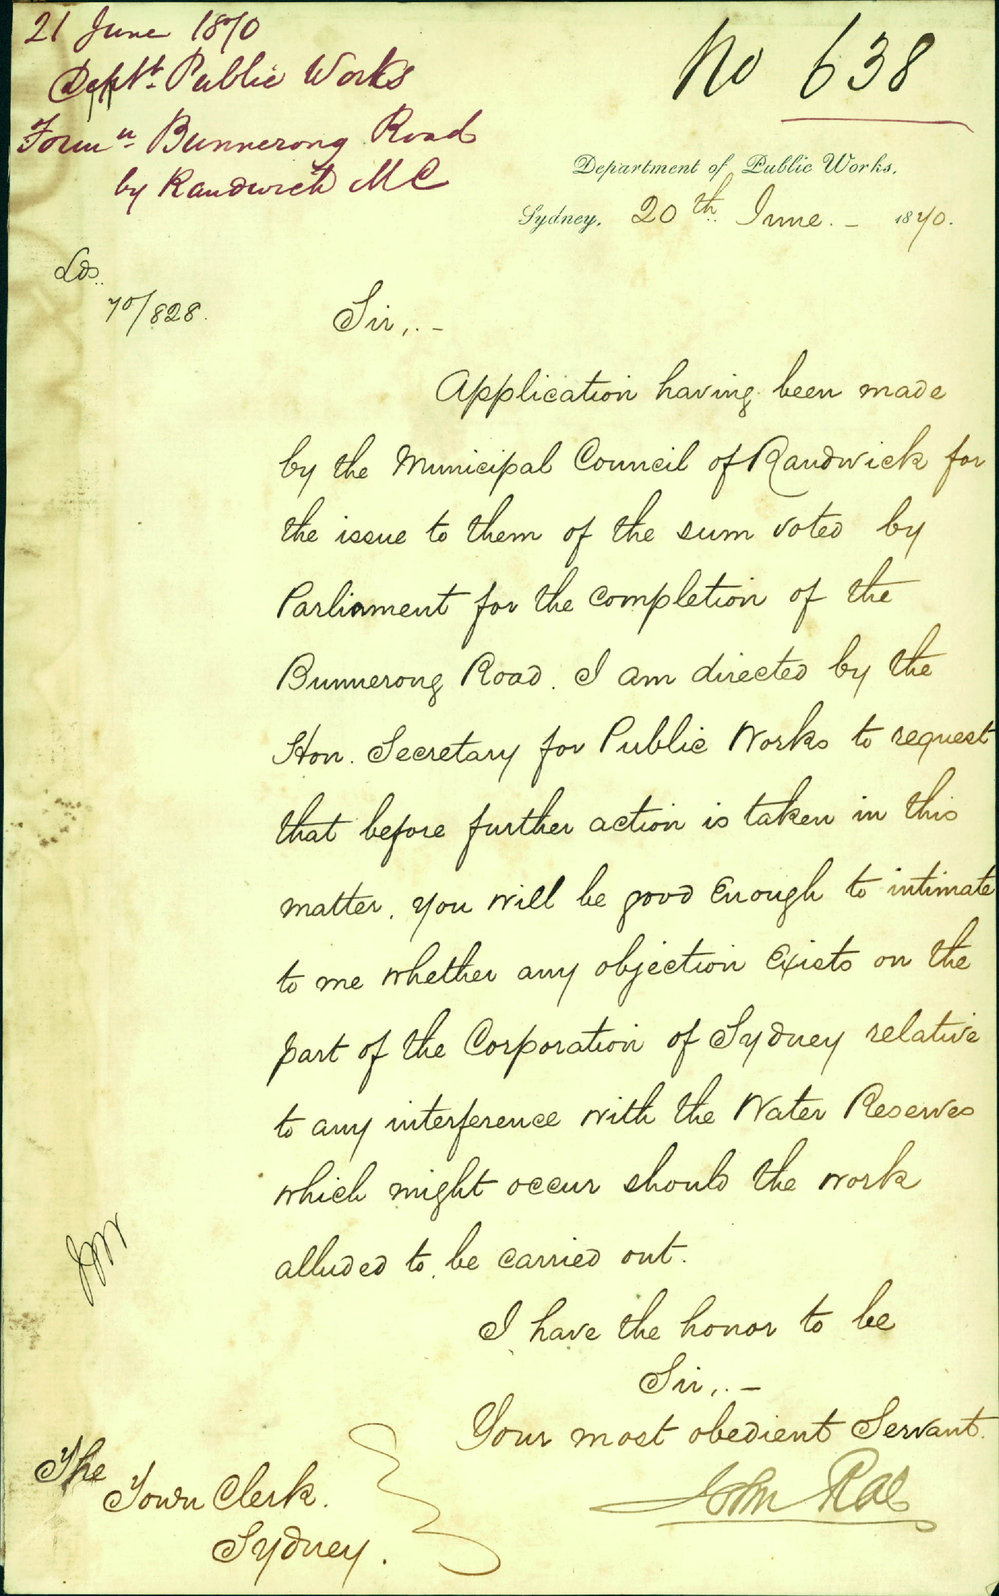 21 June 1870
Dept. Public Works
Form.n Bunnerong Road
by Randwick M C
No 638
Department of Public Works.
Sydney. 20th June. - 1870.
70/828.
Sir,. -
Application having been made
by the Municipal Council of Randwick for
the issue to them of the sum voted by
Parliament for the completion of the
Bunnerong Road. I am directed by the
Hon. Secretary for Public Works to request
that before further action is taken in this
matter. you will be good Enough to intimate
to me whether any objection Exists on the
part of the Corporation of Sydney relative
to any interference with the Water Reserves
which might occur should the work
alluded to be carried out.
I have the honor to be
Sir,. -
Your most obedient Servant.
John Rae
The
Town Clerk.
Sydney.